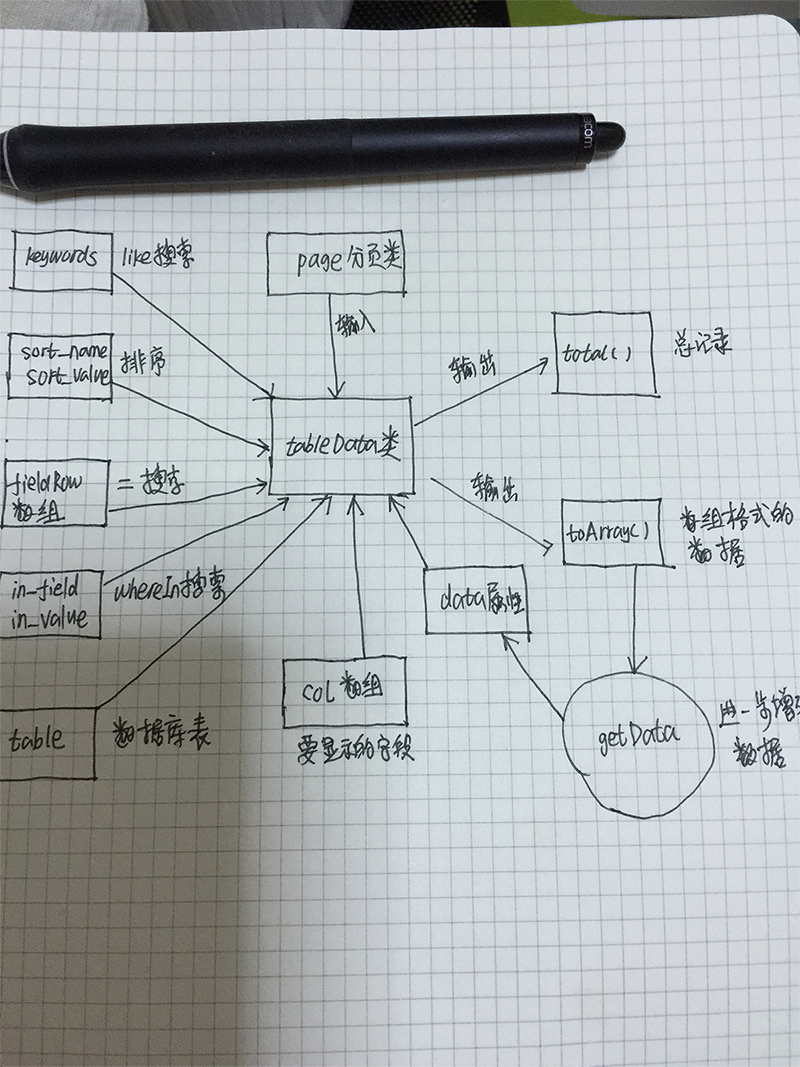 acom
keywords
like搜索
page分页类
输入
sort_name
sort_value
排序
输出
total()
总记录
tableData类
fieldRow
数组
= 搜索
输出
toArray()
数组格式的
数据
in_field
in_value
whereIn搜索
data属性
col 数组
要显示的字段
table
数据库表
getData
进一步增
数据